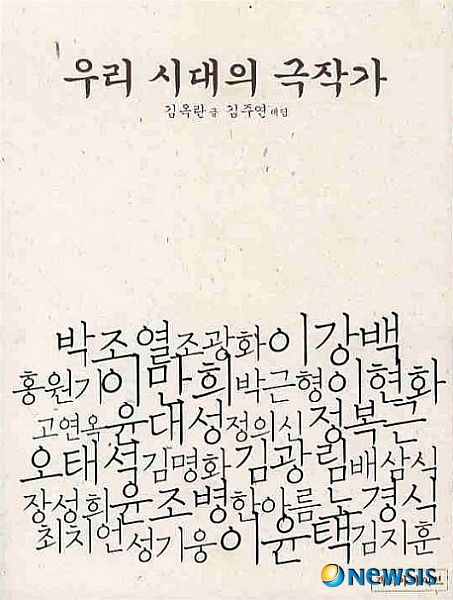 우리 시대의 극작가
김옥란 글 김주연 대담
박조열 조광화 이강백
홍원기 이만희 박근형 이현화
고연옥 윤대성 정의신 정복근
오태석 김명화 김광림 배삼식
장성희 윤조병 한아름 노경식
최치언 성기웅 이윤택 김지훈
newsis